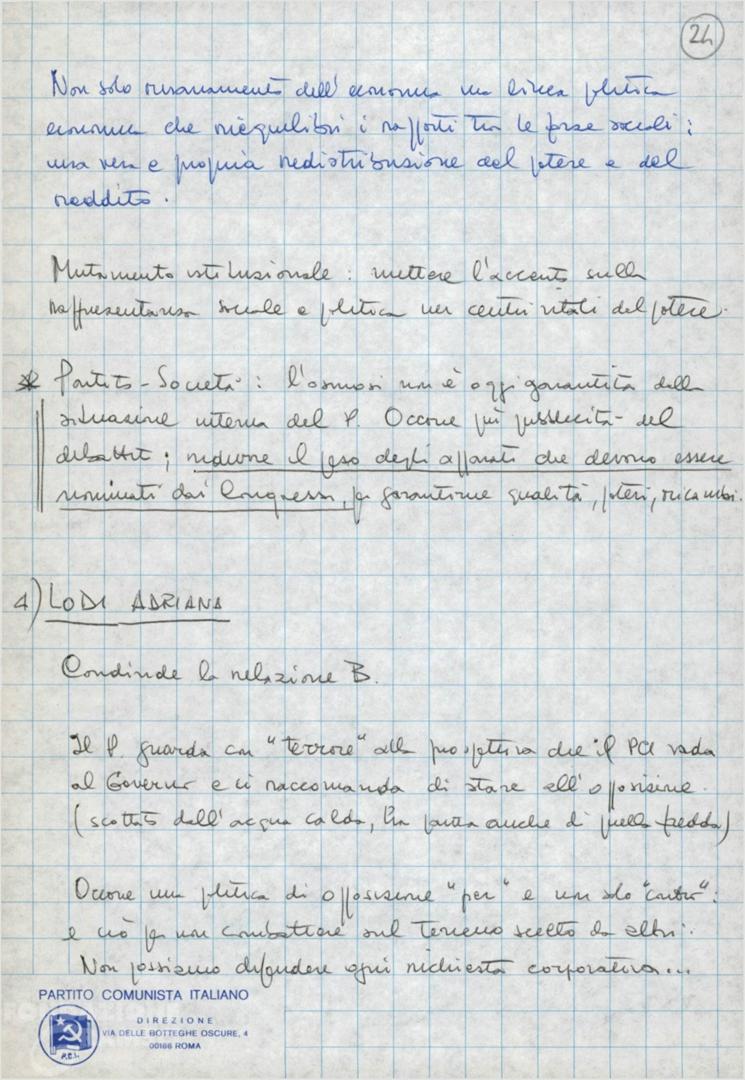 24
Non solo risanamento dell'economia ma linea politica
economica che riequilibri i rapporti tra le forze sociali:
una vera e propria redistribuzione del potere e del
reddito.
Mutamento istituzionale: mettere l'accento sulla
rappresentanza sociale e politica nei centri vitali del potere.
* Partito-Società: l'osmosi non è oggi garantita dalla
situazione interna del P. Occorre più pubblicità del
dibattito; ridurre il peso degli apparati che devono essere
nominati dai Congressi, per garantirne qualità, poteri, ricambi.
4) LODI ADRIANA
Condivide la relazione B.
Il P. guarda con "terrore" alla prospettiva che il PCI vada
al Governo e ci raccomanda di stare all'opposizione.
(scottato dall'acqua calda, ha paura anche di quella fredda)
Occorre una politica di opposizione "per" e non solo "contro":
e ciò per non combattere sul terreno scelto da altri.
Non possiamo difendere ogni richiesta corporativa...
PARTITO COMUNISTA ITALIANO
DIREZIONE
VIA DELLE BOTTEGHE OSCURE, 4
00186 ROMA
P.C.I.